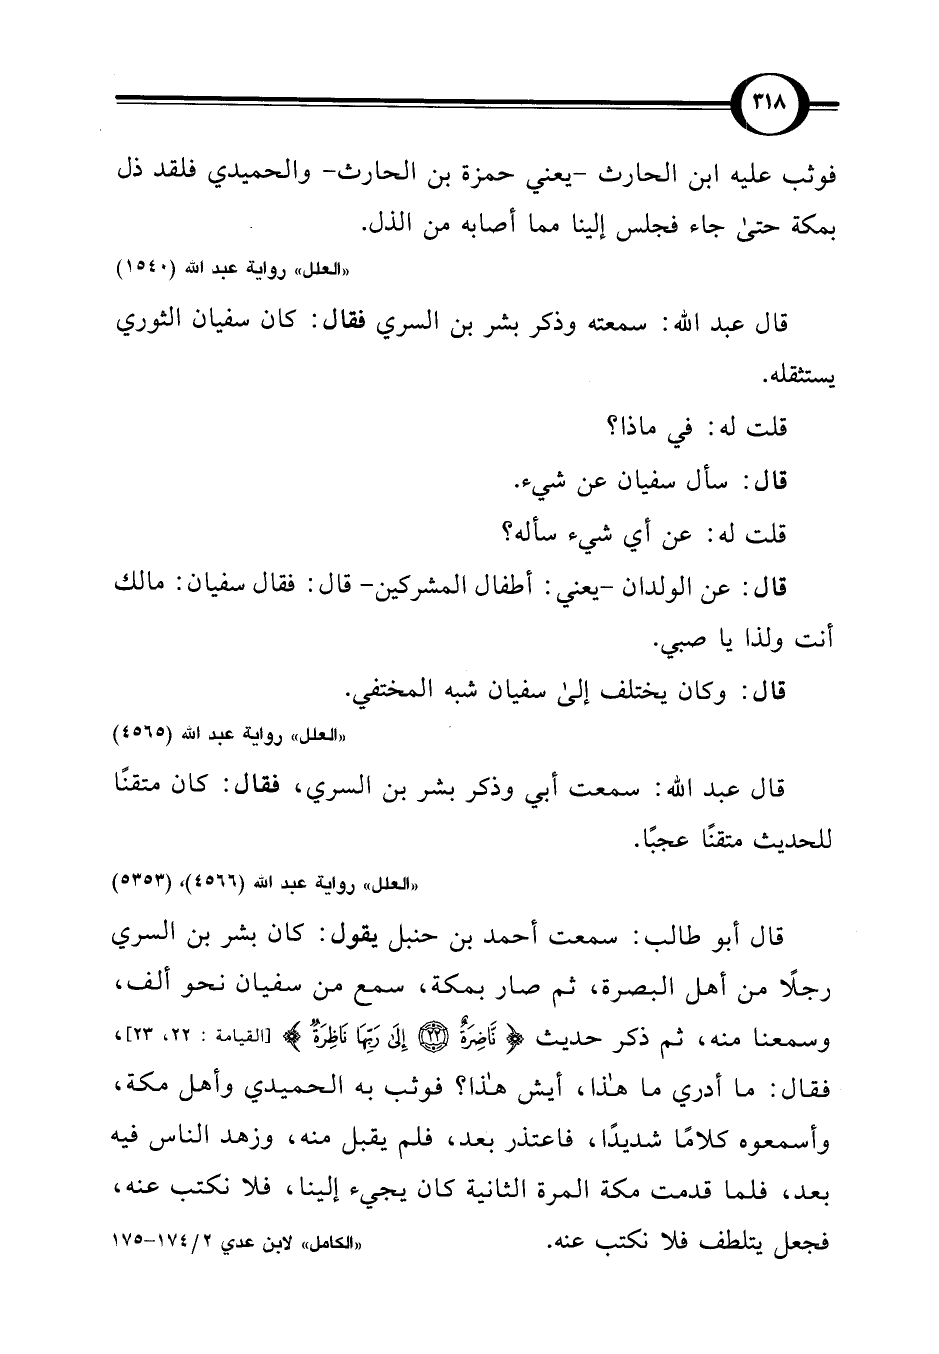 ٣١٨
فوثب عليه ابن الحارث -يعني حمزة بن الحارث- والحميدي فلقد ذل
بمكة حتىٰ جاء فجلس إلينا مما أصابه من الذل.
«العلل» رواية عبد الله (١٥٤٠)
قال عبد الله: سمعته وذكر بشر بن السري فقال: كان سفيان الثوري
يستثقله.
قلت له: في ماذا؟
قال: سأل سفيان عن شيء.
قلت له: عن أي شيء سأله؟
قال: عن الولدان -يعني: أطفال المشركين- قال: فقال سفيان: مالك
أنت ولذا يا صبي.
قال: وكان يختلف إلىٰ سفيان شبه المختفي.
«العلل» رواية عبد الله (٤٥٦٥)
قال عبد الله: سمعت أبي وذكر بشر بن السري، فقال: كان متقنًا
للحديث متقنًا عجبًا.
«العلل» رواية عبد الله (٤٥٦٦)، (٥٣٥٣)
قال أبو طالب: سمعت أحمد بن حنبل يقول: كان بشر بن السري
رجلًا من أهل البصرة، ثم صار بمكة، سمع من سفيان نحو ألف،
وسمعنا منه، ثم ذكر حديث ﴿نَّاضِرَةٌ ٢٢ إِلَىٰ رَبِّهَا نَاظِرَةٌ﴾ [القيامة: ٢٢، ٢٣]،
فقال: ما أدري ما هٰذا، أيش هٰذا؟ فوثب به الحميدي وأهل مكة،
وأسمعوه كلامًا شديدًا، فاعتذر بعد، فلم يقبل منه، وزهد الناس فيه
بعد، فلما قدمت مكة المرة الثانية كان يجيء إلينا، فلا نكتب عنه،
فجعل يتلطف فلا نكتب عنه. «الكامل» لابن عدي ٢/ ١٧٤-١٧٥